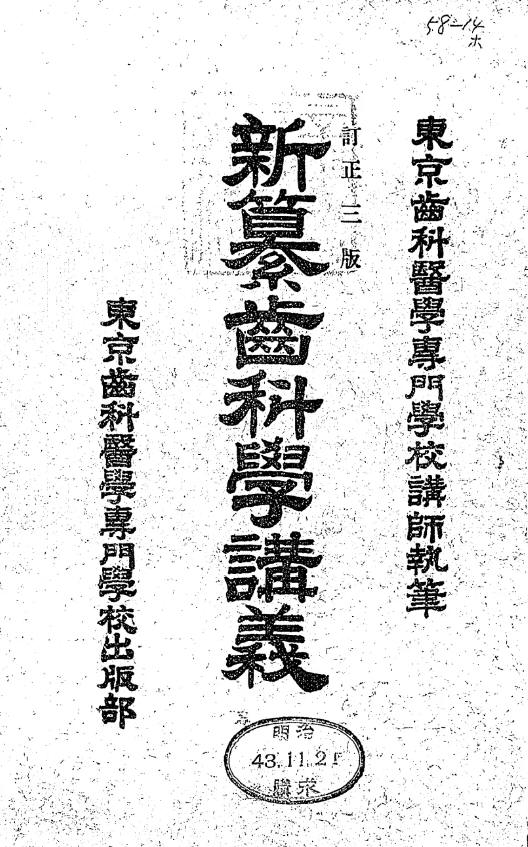 58-14
ホ
東京齒科醫學專門學校講師執筆
訂正三版
新纂齒科學講義
東京齒科醫學專門學校出版部
明治
43.11.2
購求